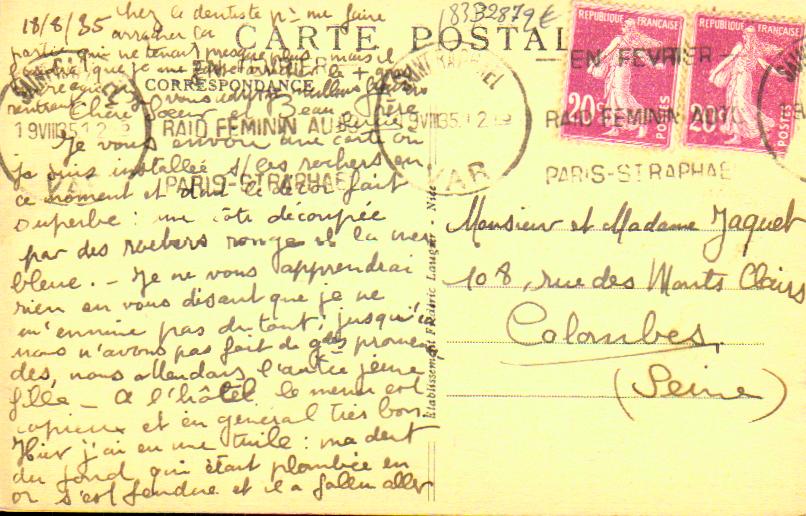 18/8/35 chez le dentiste pr me faire
arracher la
partie qui ne tenait presque plus mais il
CARTE POSTALE
CORRESPONDANCE
Chère Soeur et Beau Frère
Je vous envoie une carte où
je suis installée s/ les rochers en
ce moment et dont le décor fait
superbe : une côte découpée
par des rochers rouges et la mer
bleue. - Je ne vous apprendrai
rien en vous disant que je ne
m'ennuie pas du tout, jusqu'ici
nous n'avons pas fait de gdes promena
des, nous attendons l'autre jeune
fille - A l'hôtel le menu est
copieux et en général très bon.
Hier j'ai eu une tuile : ma dent
du fond qui était plombée en
or s'est fendue et il a fallu aller
183B2879 €
REPUBLIQUE FRANÇAISE
20c
POSTES
REPUBLIQUE FRANÇAISE
20c
POSTES
SAINT RAPHAEL
19 VIII 35
VAR
EN FEVRIER
RAID FEMININ AUTO
PARIS-ST RAPHAEL
SAINT RAPHAEL
19 VIII 35
VAR
EN FEVRIER
RAID FEMININ AUTO
PARIS-ST RAPHAE
Monsieur et Madame Jaquet
108, rue des Monts Clairs
Colombes
(Seine)
Etablissement Frédéric Laugier - Nice